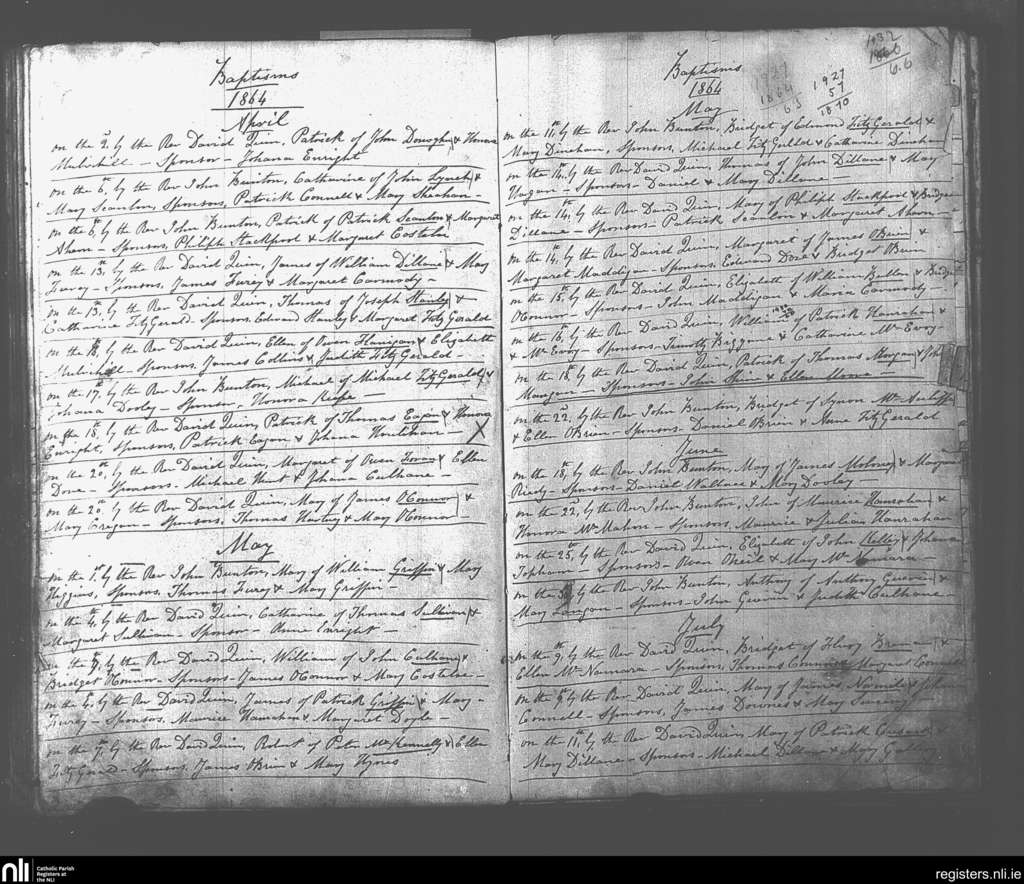 Baptisms
1864
April
on the 2d by the Rev David Quin, Patrick of John Donoghu & Honora
Mulinhill - Sponsor - Johana Enright
on the 6th by the Rev John Bunton, Catharine of John Lynch &
Mary Scanlon, Sponsors, Patrick Connell & Mary Sheahan
on the 6th by the Rev John Bunton, Patrick of Patrick Scanlon & Margaret
Ahern - Sponsors, Philiph Stackpool & Margaret Costelo
on the 13th by the Rev David Quin, James of William Dillane & Mary
Furey - Sponsors, James Furey & Margaret Carmody
on the 13th by the Rev David Quin, Thomas of Joseph Hanly &
Catharine FitzGerald - Sponsors Edward Hanly & Margaret FitzGerald
on the 18th by the Rev David Quin, Ellen of Owen Hanigan & Elizabeth
Mulinhill - Sponsors James Collins & Judith FitzGerald
on the 17th by the Rev John Bunton, Michael of Michael FitzGerald &
Johana Dooley - Sponsor, Honora Keefe
on the 18th by the Rev David Quin, Patrick of Thomas Eagan & Honora
Enright, Sponsors, Patrick Eagan & Johana Houlihan X
on the 20th by the Rev David Quin, Margaret of Owen & Ellen
Dore - Sponsors. Michael Hunt & Johana Culhane
on the 20th by the Rev David Quin, Mary of James OConnor &
Mary Cregan - Sponsors, Thomas Hartney & Mary OConnor
May
on the 1st by the Rev John Bunton, Mary of William Griffin & Mary
Higgins, Sponsors, Thomas Furey & Mary Griffin
on the 4th by the Rev David Quin, Catharine of Thomas Sullivan &
Margaret Sullivan - Sponsor - Anne Enright
on the by the Rev David Quin, William of John Culhane &
Bridget OConnor - Sponsors - James OConnor & Mary Costelo
on the by the Rev David Quin, James of Patrick Griffin & Mary
Furey - Sponsors, Maurice Hanrahan & Margaret Doyle
on the by the Rev David Quin, Robert of Peter McKennelly & Ellen
FitzGerald - Sponsors, James OBrien & Mary Hynes
Baptisms
1864
May
1927
1864
63
1927
57
1870
1932
1866
6.6
on the 11th by the Rev John Bunton, Bridget of Edmond FitzGerald &
Mary Dineham, Sponsors, Michael FitzGerald & Catharine Dineham
on the 14th by the Rev David Quin, Thomas of John Dillane & Mary
Hogan - Sponsors - Daniel & Mary Dillane
on the 14th by the Rev David Quin, Mary of Philiph Stackpool & Bridget
Dillane - Sponsors - Patrick Scanlon & Margaret Ahern
on the 14th by the Rev David Quin, Margaret of James OBrien &
Margaret Maddigan - Sponsors, Edward Dore & Bridget OBrien
on the 15th by the Rev David Quin, Elizabeth of William Bullen & Bridget
OConnor - Sponsors - John Maddigan & Maria Carmody
on the 16th by the Rev David Quin, William of Patrick Hanrahan &
& McEvoy - Sponsors - Timothy Biggane & Catharine McEvoy
on the 18th by the Rev David Quin, Patrick of Thomas Mangan &
Mangan - Sponsors - John & Ellen
on the 22d by the Rev John Bunton, Bridget of Symon McAuliffe
& Ellen OBrien - Sponsors - Daniel OBrien & Anne FitzGerald
June
on the 18th by the Rev John Bunton, Mary of James Moloney & Margaret
Reidy - Sponsors - Daniel Wallace & Mary Dooley
on the 22d by the Rev John Bunton, John of Maurice Hanrahan &
Honora McMahon - Sponsors, Maurice & Julian Hanrahan
on the 25th by the Rev David Quin, Elizabeth of John Kelley & Johana
Topham - Sponsors - Owen Oneil & Mary McNamara
on the 30th by the Rev John Bunton, Anthony of Anthony Guerin &
Mary Langan - Sponsors - John Guerin & Judith Culhane
July
on the 9th by the Rev David Quin, Bridget of &
Ellen McNamara - Sponsors, Thomas & Margaret Connell
on the by the Rev David Quin, Mary of James & Johana
Connell - Sponsors, James Downes & Mary Sweeny
on the 11th by the Rev David Quin, Mary of Patrick &
Mary Dillane - Sponsors - Michael Dillane & Mary
nli
Catholic Parish
Registers at
the NLI
registers.nli.ie